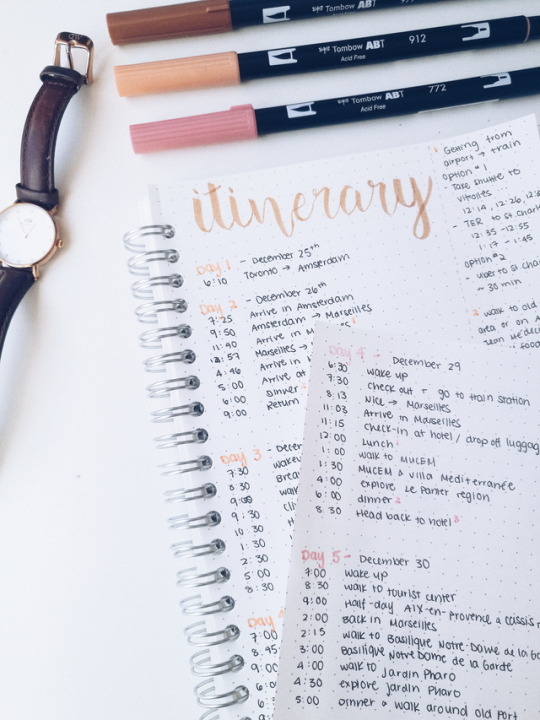 Tombow ABT
Acid Free
Tombow ABT 912
Acid Free
Tombow ABT 772
Acid Free
itinerary
Day 1 - December 25th
6:10 Toronto → Amsterdam
Day 2 - December 26th
7:25 Arrive in Amsterdam
9:50 Amsterdam → Marseilles
11:40 Arrive in M
12:57 Marseilles →
4:46 Arrive in
5:00 Arrive at
6:00 Dinner
9:00 Return
Day 3 - Decem
7:30 wakeu
8:30 Brea
9:00 walk
9:30
10:30
1:30
2:30
5:00
8:30
Day
7:00
8:45
9:00
Getting from
airport → train
option #1
- Take shuttle to
vitrolles
12:14, 12:26, 12:3
- TER to St. Charl
12:35 - 12:55
1:17 - 1:45
option #2
- uber to St Char
~ 30 min
2 walk to old
area or on A
Day 4 - December 29
6:30 wake up
7:30 check out + go to train station
8:13 Nice → Marseilles
11:03 Arrive in Marseilles
11:15 check-in at hotel / drop off luggag
12:00 Lunch
1:00 walk to MUCEM
1:30 MUCEM & Villa Mediterranée
4:00 explore Le Panier region
6:00 dinner 2
8:30 Head back to hotel 3
Day 5 - December 30
7:00 wake up
8:30 walk to tourist center
9:00 Half-day Aix-en-Provence & cassis
2:00 Back in Marseilles
2:15 walk to Basilique Notre-Dome de la Go
3:00 Basilique Notre Dome de la Garde
4:00 walk to Jardin Pharo
4:30 explore Jardin Pharo
5:00 Dinner & walk around old Port